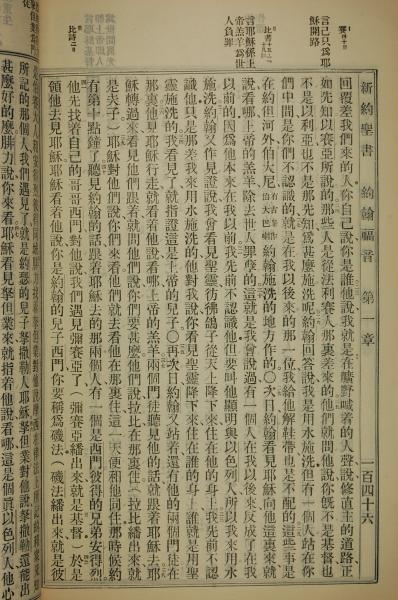 新約聖書 約翰福音 第一章 一百四十六
回覆差我們來的人你自己說你是誰他說我就是在曠野喊着的人聲說修直主的道路正
如先知以賽亞所說的那些人是從法利賽人那裏差來的他們就問他說你旣不是基督也
不是以利亞也不是那先知爲甚麽施洗呢約翰回答說我是用水施洗但有一個人站在你
們中間是你們不認識的就是在我以後來的那一位我給他解鞋帶也是不配的這些事是
在約但河外伯大尼約翰施洗的地方作的〇次日約翰看見耶穌向他這裏來就
說看哪上帝的羔羊除去世人罪孽的這就是我曾說過有一個人在我以後來反成了在我
以前的因爲他本來在我以前我先前不認識他但要叫他顯明與以色列人所以我來用水
施洗約翰又作見證說我曾看見聖靈彷彿鴿子從天上降下來住在他的身上我先前不認
識他只是那差我來用水施洗的他對我說你看見聖靈降下來住在誰的身上誰就是用聖
靈施洗的我看見了就指證這是上帝的兒子〇再次日約翰又站着還有他的兩個門徒在
那裏他見耶穌行走就看着他說看哪上帝的羔羊兩個門徒聽見他的話就跟着耶穌去耶
穌轉過來看見他們跟着就問他們說你們要甚麽他們說拉比在那裏住(拉比繙出來就
是夫子)耶穌對他們說你們來看他們就去看他在那裏住這一天便和他同住那時候約
有第十點鐘了聽見約翰的話跟着耶穌去的那兩個人有一個是西門彼得的兄弟安得烈
他先找着自己的哥哥西門對他說我們遇見彌賽亞了(彌賽亞繙出來就是基督)於是
領他去見耶穌耶穌看着他說你是約翰的兒子西門你要稱爲磯法(磯法繙出來就是彼
所記的那個人我們遇見了就是約瑟的兒子拿撒勒人耶穌拿但業對他說拿撒勒還能出
甚麽好的麽腓力說你來看耶穌看見拿但業來就指着他說看哪這是個眞以色列人他心
言己只爲耶
穌開路
言耶穌係上
帝羔羊爲世
人負罪